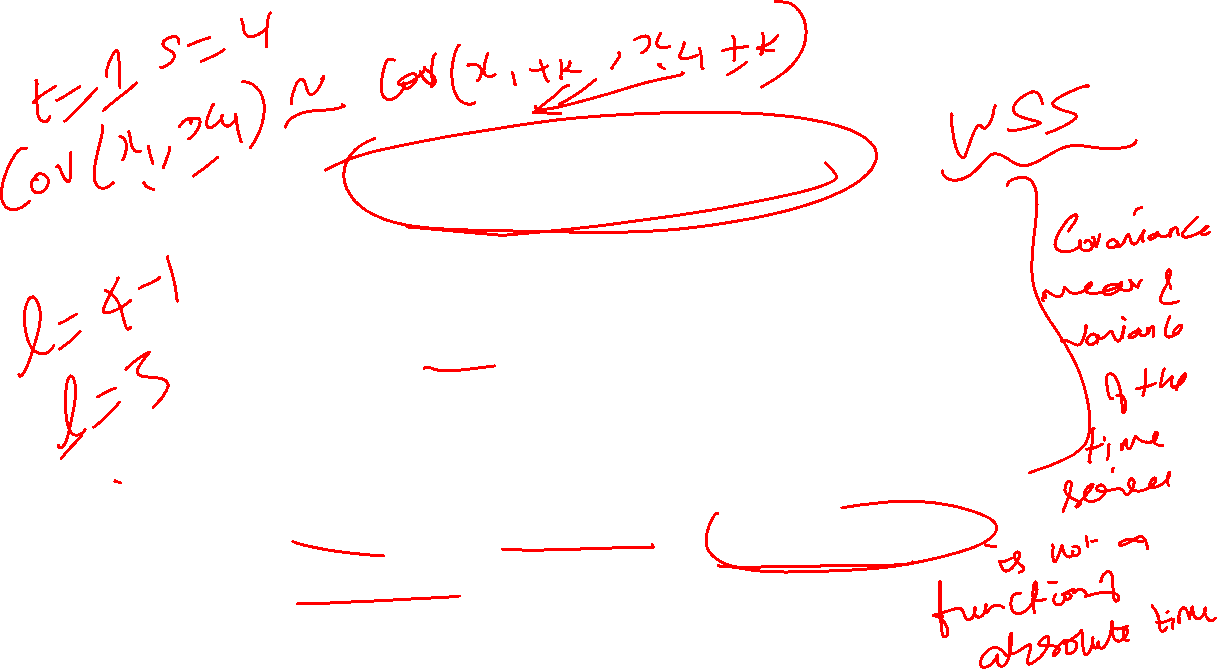 t=1 s=4
Cov(x₁, x₄) ≃ Cov(x₁+k, x₄+k)
l=4-1
l=3
WSS
Covariance
mean &
variance
of the
time
series
is not a
function of
absolute time